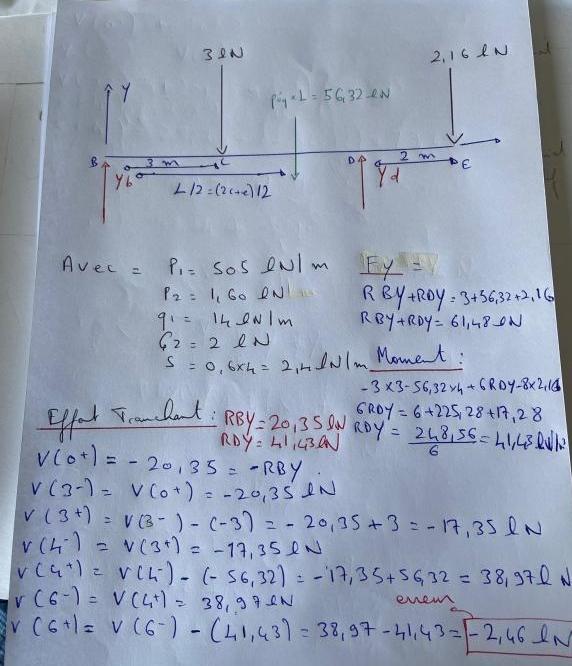 3 kN
2,16 kN
Y
56,32 kN
B 3 m C D 2 m E
Yb Yd
L/2 = (2c+e)/2
Avec = P1 = 505 kN/m Fy =
P2 = 1,60 kN RBY+RDY = 3+56,32+2,16
q1 = 14 kN/m RBY+RDY = 61,48 kN
G2 = 2 kN
S = 0,6x4 = 2,4 kN/m Moment :
-3x3-56,32x4+6RDY-8x2,16
Effort Tranchant : RBY = 20,35 kN 6RDY = 6+225,28+17,28
RDY = 41,43 kN RDY = 248,56/6 = 41,43 kN
V(0+) = -20,35 = -RBY.
V(3-) = V(0+) = -20,35 kN
V(3+) = V(3-) - (-3) = -20,35+3 = -17,35 kN
V(4-) = V(3+) = -17,35 kN
V(4+) = V(4-) - (-56,32) = -17,35+56,32 = 38,97 kN
V(6-) = V(4+) = 38,97 kN
erreur
V(6+) = V(6-) - (41,43) = 38,97-41,43 = -2,46 kN